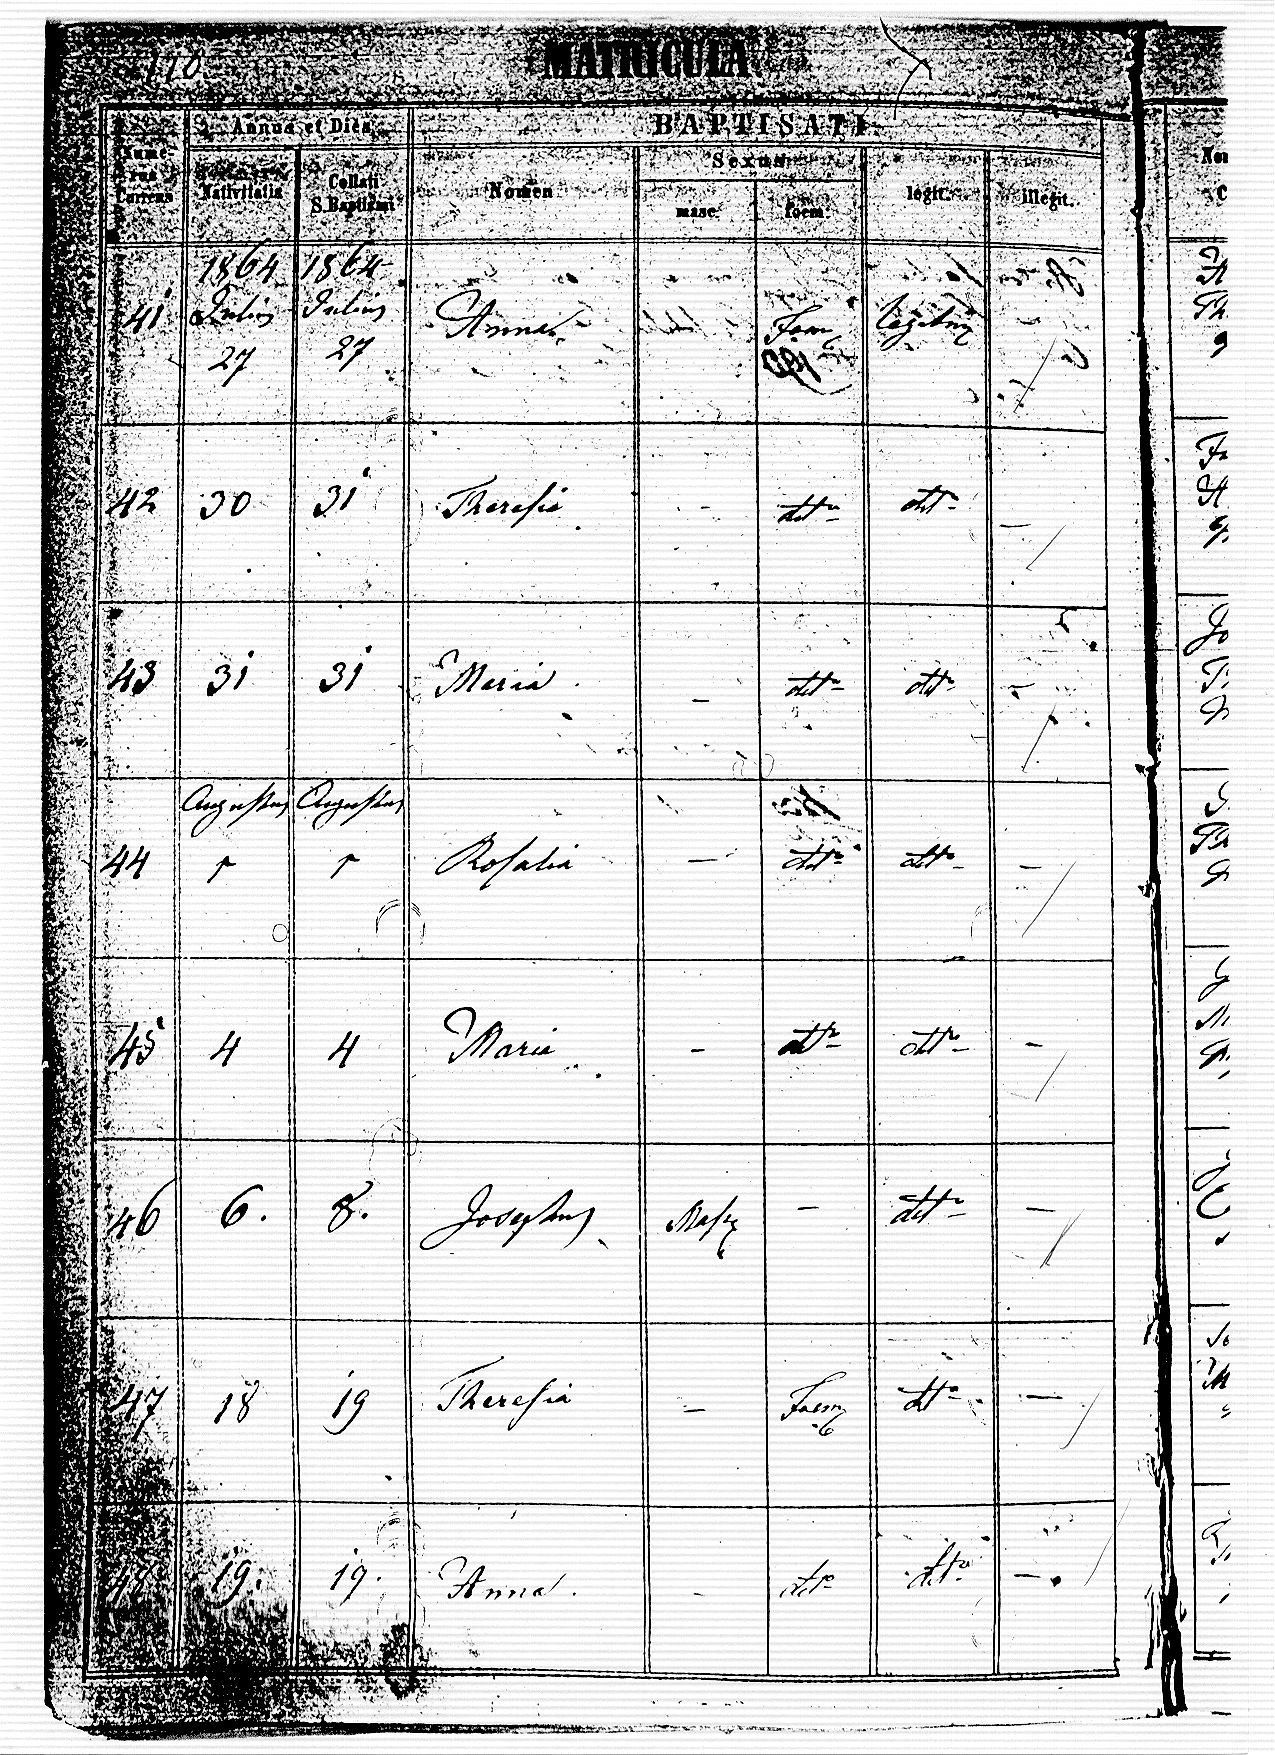 110
MATRICULA
Annus et Dies
BAPTISATI
Nume-
rus
Currens
Nativitatis
Collati
S. Baptismi
Nomen
Sexus
masc.
foem.
legit.
illegit.
1864 1864
41 Julius 27 Julius 27 Anna Foem legitim
42 30 31 Theresia - dtto dtto -
43 31 31 Maria - dtto dtto -
Augustus Augustus
44 1 1 Rosalia - dtto dtto -
45 4 4 Maria - dtto dtto -
46 6. 8. Josephus Masc - dtto -
47 18 19 Theresia - Foem dtto -
48 19. 19. Anna. - dtto dtto -